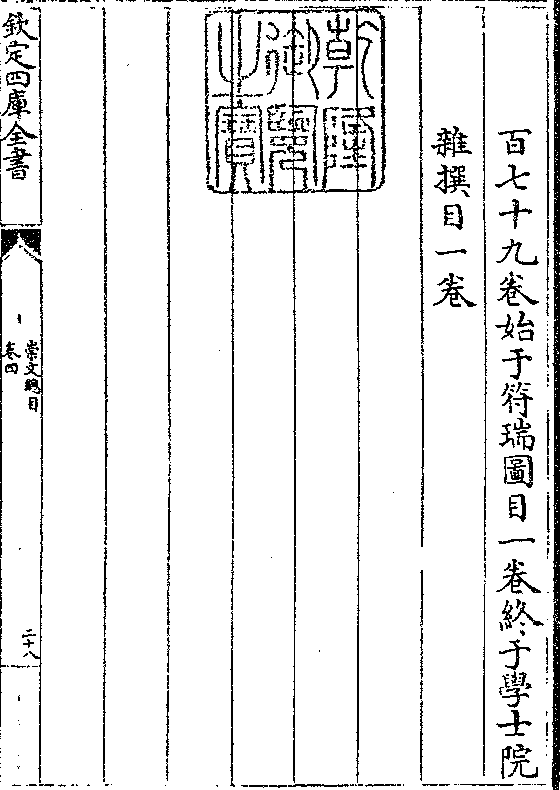 百七十九卷始于符瑞圖目一卷終于學士院
雜撰目一卷
乾隆御覽之寶
欽定四庫全書
崇文總目
卷四
二十八